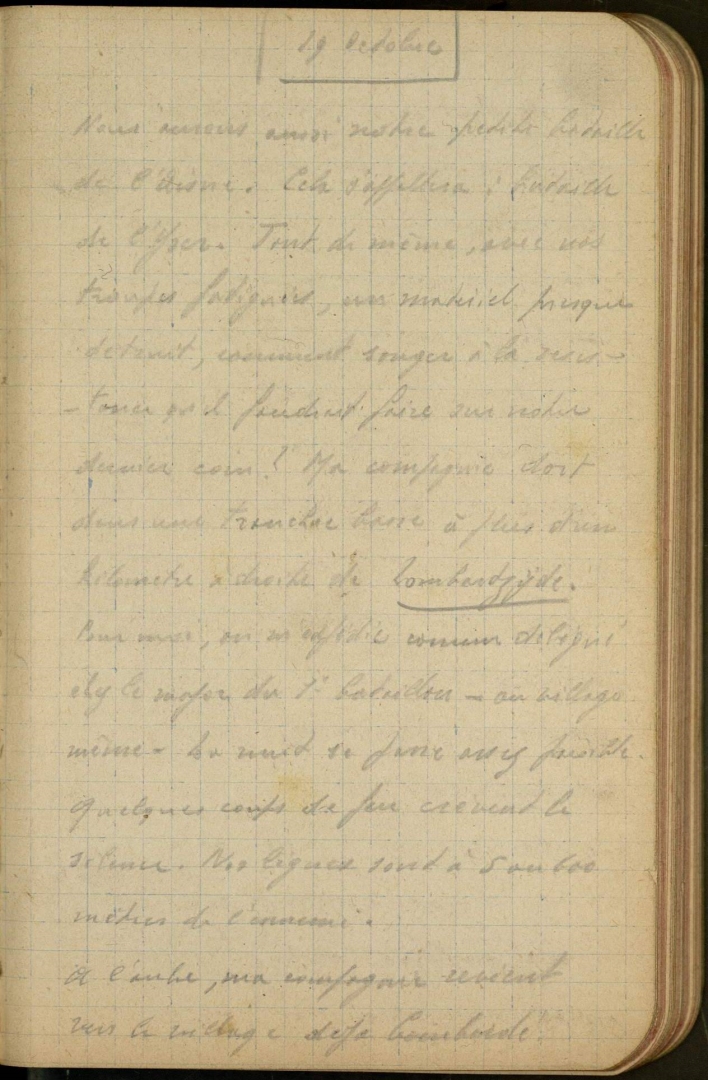 19 Octobre
Nous aurons aussi notre petite bataille
de l'Aisne. Cela s'appellera : bataille
de l'Yser. Tout de même, avec nos
troupes fatiguées, un matériel presque
détruit, comment songer à la résis-
-tance qu'il faudrait faire sur notre
dernier coin ? Ma compagnie dort
dans une tranchée basse à plus d'un
kilomètre à droite de Lombartzyde.
Pour moi, on m'expédie comme délégué
chez le major du 1r bataillon - au village
même - La nuit se passe assez paisible.
Quelques coups de feu crèvent le
silence. Nos lignes sont à 5 ou 600
mètres de l'ennemi.
A l'aube, ma compagnie revient
vers le village déjà bombardé.